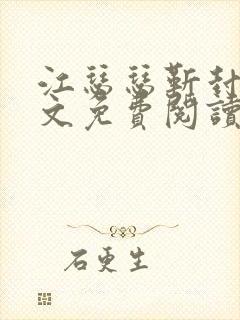 江瑟瑟靳封
文免費閱讀
石更生